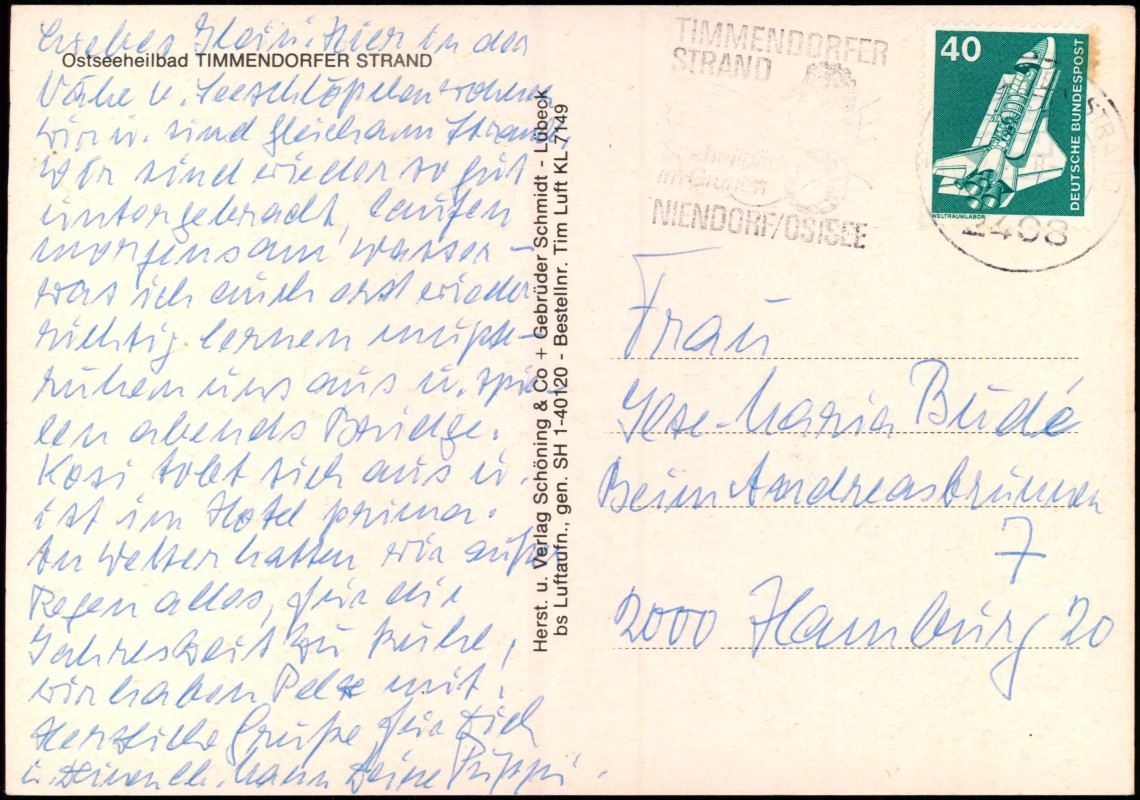 Hier in der
Ostseeheilbad TIMMENDORFER STRAND
Nähe v. Seeschlößchen wohnen
wir u. sind gleich am Strand.
Wir sind wieder so gut
untergebracht, laufen
morgens am Wasser –
was ich auch erst wieder
richtig lernen mußte –
ruhen uns aus u. spie-
len abends Bridge.
tobt sich aus u.
ist im Hotel prima.
An Wetter hatten wir außer
Regen alles, für die
Jahreszeit zu kühl,
wir haben Pelze mit.
Herzliche Grüße für Dich
u. Deine
Herst. u. Verlag Schöning & Co + Gebrüder Schmidt - Lübeck
bs Luftaufn., gen. SH 1-40120 - Bestellnr. Tim Luft KL 7149
TIMMENDORFER
STRAND
im Grünen
NIENDORF/OSTSEE
40
DEUTSCHE BUNDESPOST
WELTRAUMLABOR
2408
Frau
Maria Budé
Beim Andreasbrunnen
7
2000 Hamburg 20